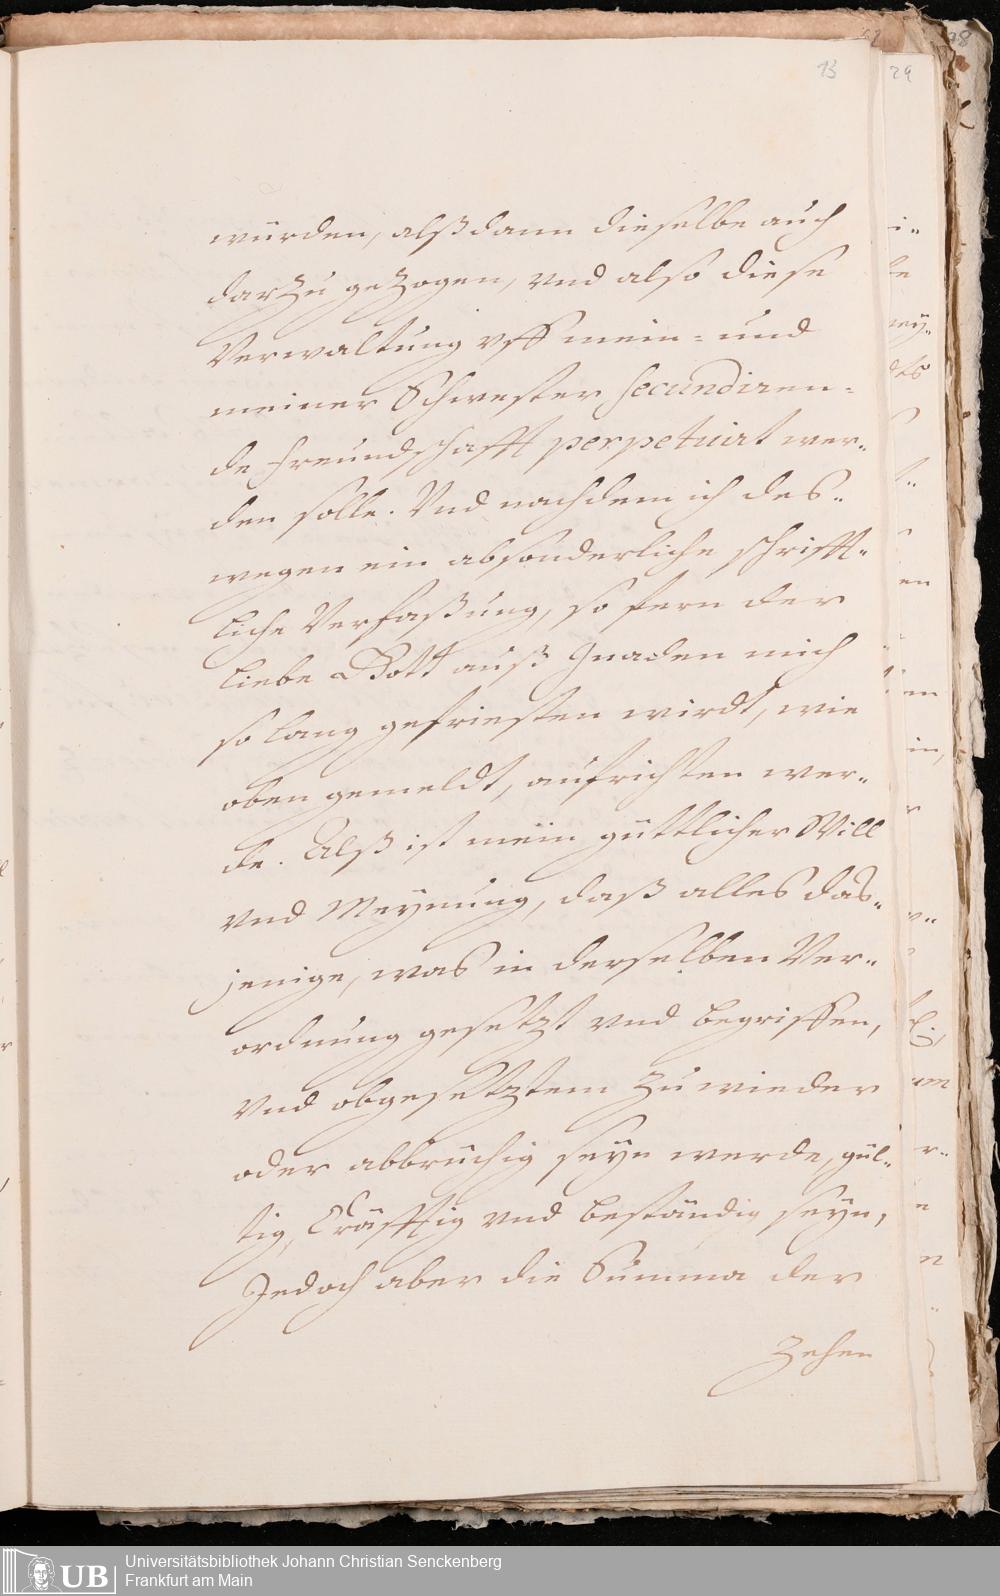 13
29
würden, alßdann dieselbe auch
darzu gezogen, vnd also diese
Verwaltung vff mein- und
meiner Schwester secundiren-
de Freundschafft perpetuirt wer-
den solle. Vnd nachdem ich des-
wegen ein absonderliche schrifft-
liche Verfaßung, so fern der
liebe Gott auß Gnaden mich
so lang gefriesten wirdt, wie
oben gemeldt, aufrichten wer-
de. Alß ist mein güttlicher Will
vnd Meynung, daß alles das-
jenige, was in derselben Ver-
ordnung gesetzt vnd begriffen,
vnd obgesetztem zu wieder
oder abbrüchig seyn werde, gül-
tig, Cräfftig vnd beständig seyn,
Jedoch aber die Summa der
Zehen
UB
Universitätsbibliothek Johann Christian Senckenberg
Frankfurt am Main